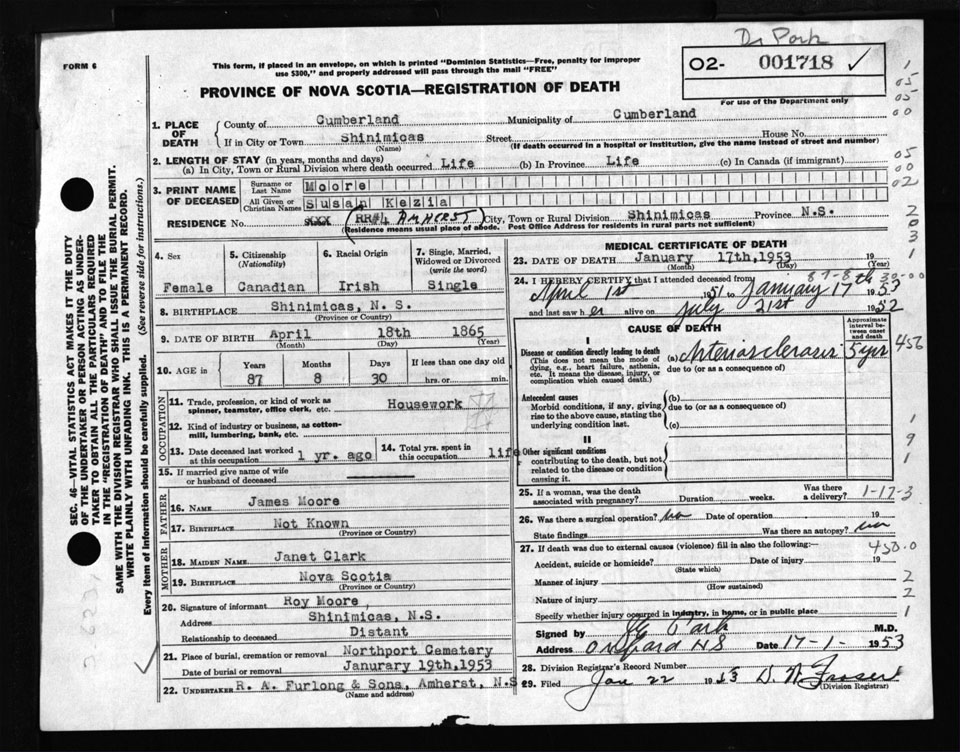 Dr Park
FORM 6
This form, if placed in an envelope, on which is printed "Dominion Statistics—Free, penalty for improper
use $300," and properly addressed will pass through the mail "FREE"
O2- 001718 ✓
For use of the Department only
PROVINCE OF NOVA SCOTIA—REGISTRATION OF DEATH
1. PLACE OF DEATH
County of Cumberland Municipality of Cumberland
If in City or Town Shinimicas Street House No.
(Name) (If death occurred in a hospital or institution, give the name instead of street and number)
2. LENGTH OF STAY (in years, months and days)
(a) In City, Town or Rural Division where death occurred Life (b) In Province Life (c) In Canada (if immigrant)
3. PRINT NAME OF DECEASED
Surname or Last Name Moore
All Given or Christian Names Susan Kezia
RESIDENCE No. XXX (RR#4 AMHERST) City, Town or Rural Division Shinimicas Province N.S.
(Residence means usual place of abode. Post Office Address for residents in rural parts not sufficient)
4. Sex
Female
5. Citizenship (Nationality)
Canadian
6. Racial Origin
Irish
7. Single, Married, Widowed or Divorced (write the word)
Single
8. BIRTHPLACE Shinimicas, N. S.
(Province or Country)
9. DATE OF BIRTH April 18th 1865
(Month) (Day) (Year)
10. AGE in Years Months Days If less than one day old
87 8 30 hrs. or min.
OCCUPATION
11. Trade, profession, or kind of work as
spinner, teamster, office clerk, etc. Housework
12. Kind of industry or business, as cotton-
mill, lumbering, bank, etc.
13. Date deceased last worked
at this occupation 1 yr. ago
14. Total yrs. spent in
this occupation life
15. If married give name of wife
or husband of deceased
FATHER
16. NAME James Moore
17. BIRTHPLACE Not Known
(Province or Country)
MOTHER
18. MAIDEN NAME Janet Clark
19. BIRTHPLACE Nova Scotia
(Province or Country)
20. Signature of informant Roy Moore
Address Shinimicas, N.S.
Relationship to deceased Distant
21. Place of burial, cremation or removal Northport Cemetery
Date of burial or removal Janurary 19th,1953
22. UNDERTAKER R. A. Furlong & Sons, Amherst, N.S
(Name and address)
MEDICAL CERTIFICATE OF DEATH
23. DATE OF DEATH January 17th,1953 19
(Month) (Day) (Year)
87-8-30-00
24. I HEREBY CERTIFY that I attended deceased from
April 1st 1951 to January 17th 1953
and last saw her alive on July 21st 1952
CAUSE OF DEATH
Approximate interval between onset and death
I
Disease or condition directly leading to death
(This does not mean the mode of
dying, e.g., heart failure, asthenia,
etc. It means the disease, injury, or
complication which caused death.)
(a) Arteriosclerosis 5 yrs
due to (or as a consequence of)
Antecedent causes
Morbid conditions, if any, giving
rise to the above cause, stating the
underlying condition last.
(b)
due to (or as a consequence of)
(c)
II
Other significant conditions
contributing to the death, but not
related to the disease or condition
causing it.
25. If a woman, was the death
associated with pregnancy? Duration weeks. Was there a delivery?
1-17-3
26. Was there a surgical operation? no Date of operation 19
State findings Was there an autopsy? no
27. If death was due to external causes (violence) fill in also the following:—
450.0
Accident, suicide or homicide? Date of injury 19
(State which)
Manner of injury
(How sustained)
Nature of injury
Specify whether injury occurred in industry, in home, or in public place
Signed by Park M.D.
Address Oxford NS Date 17-1- 1953
28. Division Registrar's Record Number
29. Filed Jan 22 1953 D. W. Fraser
(Division Registrar)
SEC. 46—VITAL STATISTICS ACT MAKES IT THE DUTY
OF THE UNDERTAKER OR PERSON ACTING AS UNDER-
TAKER TO OBTAIN ALL THE PARTICULARS REQUIRED
IN THE "REGISTRATION OF DEATH" AND TO FILE THE
SAME WITH THE DIVISION REGISTRAR WHO SHALL ISSUE THE BURIAL PERMIT.
WRITE PLAINLY WITH UNFADING INK. THIS IS A PERMANENT RECORD.
Every item of Information should be carefully supplied. (See reverse side for instructions.)
1
05
05
00
05
00
02
2
0
3
1
1
9
1
2
2
1